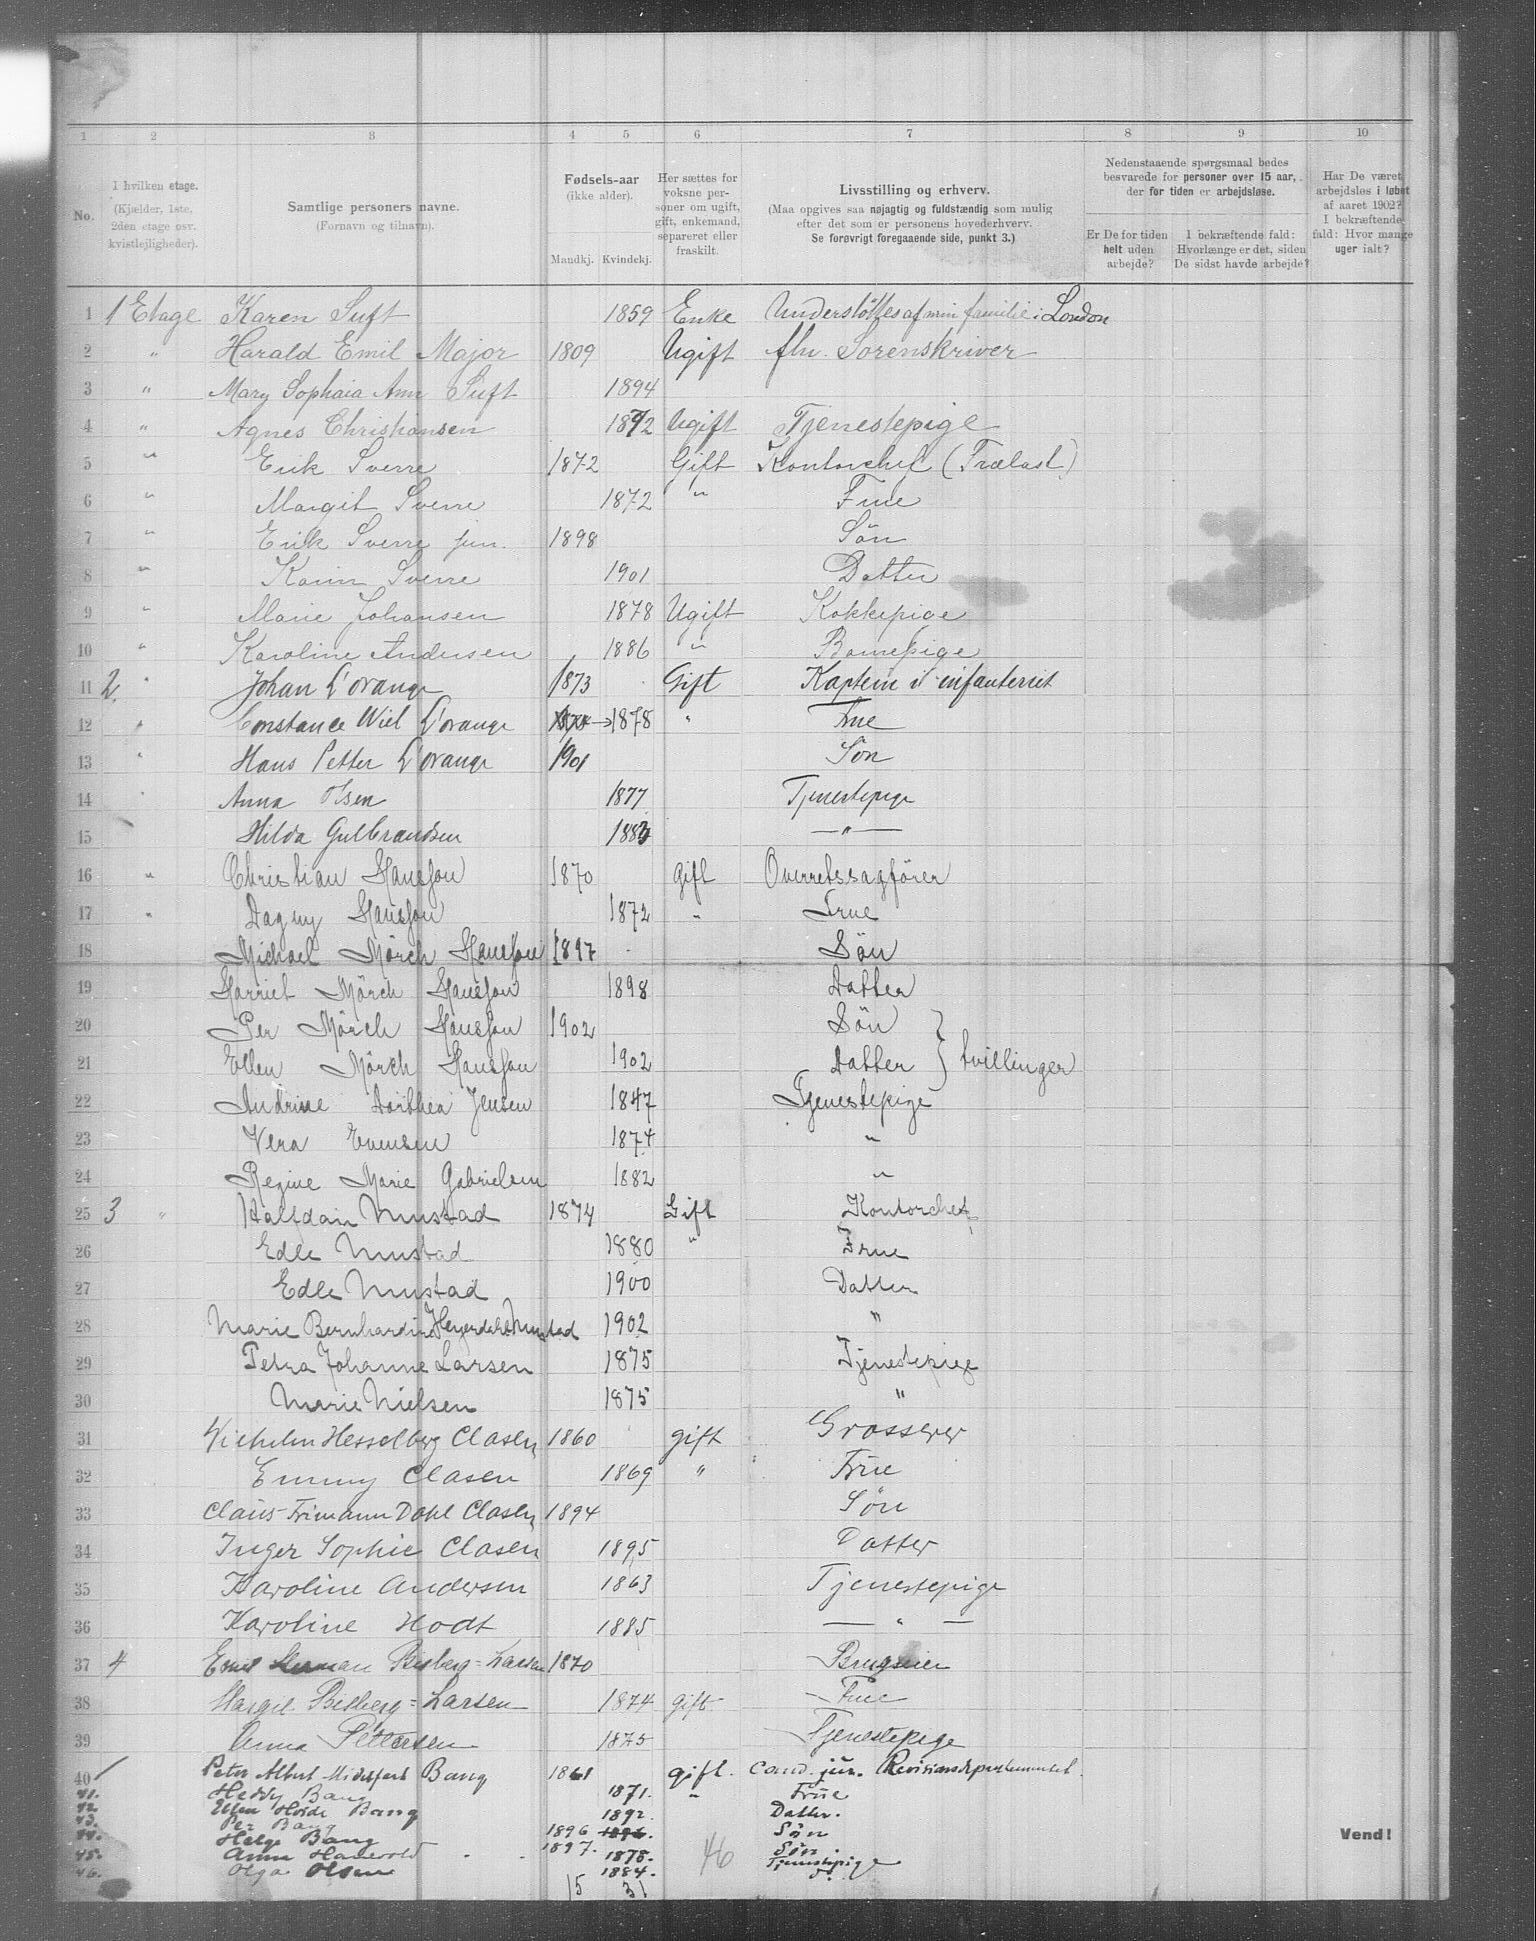 1 2 3 4 5 6 7 8 9 10
No.
I hvilken etage.
(Kjælder, 1ste, 2den etage osv. kvistlejligheder).
Samtlige personers navne.
(Fornavn og tilnavn).
Fødsels-aar
(ikke alder).
Mandkj. Kvindekj.
Her sættes for voksne personer om ugift, gift, enkemand, separeret eller fraskilt.
Livsstilling og erhverv.
(Maa opgives saa nøjagtig og fuldstændig som mulig
efter det som er personens hovederhverv.
Se forøvrigt foregaaende side, punkt 3.)
Nedenstaaende spørgsmaal bedes
besvarede for personer over 15 aar,
der for tiden er arbejdsløse.
Er De for tiden helt uden arbejde?
I bekræftende fald: Hvorlænge er det, siden De sidst havde arbejde?
Har De været arbejdsløs i løbet af aaret 1902? I bekræftende fald: Hvor mange uger ialt?
1 1 Etage Karen Suft 1859 Enke Understöttes af min familie i London
2 " Harald Emil Major 1809 Ugift fhv. Sorenskriver
3 " Mary Sophaia Ann Suft 1894
4 " Agnes Christiansen 1872 Ugift Tjenestepige
5 " Erik Sverre 1872 Gift Kontorchef (Trælast)
6 " Margit Sverre 1872 " Frue
7 " Erik Sverre jun. 1898 Sön
8 " Karin Sverre 1901 Datter
9 " Marie Johansen 1878 Ugift Kokkepige
10 " Karoline Andersen 1886 " Barnepige
11 2 " Johan L'orange 1873 Gift Kaptein i infanteriet
12 " Constance Wiel L'orange 1878 " Frue
13 " Hans Petter L'orange 1901 Sön
14 " Anna Olsen 1877 Tjenestepige
15 Hilda Gulbrandsen 1883 — " —
16 " Christian Hansson 1870 gift Overretssagförer
17 " Dagny Hansson 1872 " Frue
18 Michael Mörch Hansson 1897 Sön
19 Harriet Mörch Hansson 1898 Datter
20 Per Mörch Hansson 1902 Sön
21 Ellen Mörch Hansson 1902 Datter } tvillinger
22 Andrine Dorthea Jensen 1847 Tjenestepige
23 Vera Evensen 1874 "
24 Regine Marie Gabrielsen 1882 "
25 3 " Halfdan Mustad 1874 Gift Kontorchef
26 Edle Mustad 1880 " Frue
27 Edle Mustad 1900 Datter
28 Marie Bernhardine Heyerdahl Mustad 1902 "
29 Petra Johanne Larsen 1875 Tjenestepige
30 Marie Nielsen 1875 "
31 Wilhelm Hesselberg Clasen 1860 gift Grosserer
32 Emmy Clasen 1869 " Frue
33 Claus Frimann Dahl Clasen 1894 Sön
34 Inger Sophie Clasen 1895 Datter
35 Karoline Andersen 1863 Tjenestepige
36 Karoline Hodt 1885 — " —
37 4 Emil Herman Bisberg=Larsen 1870 Brugseier
38 Margit Bisberg=Larsen 1874 gift Frue
39 Anna Pettersen 1875 Tjenestepige
40 Peter Albert Bang 1861 gift. cand. jur. Revisionsdepartementet.
41. Heddy Bang 1871. " Frue
42. Ellen Holde Bang 1892. Datter.
43. Per Bang 1896 1896. Sön
44. Helge Bang 1897. Sön
45. Anna 1878. Tjenestepige
46. Olga Olsen 1884. do
15 31 46
Vend!